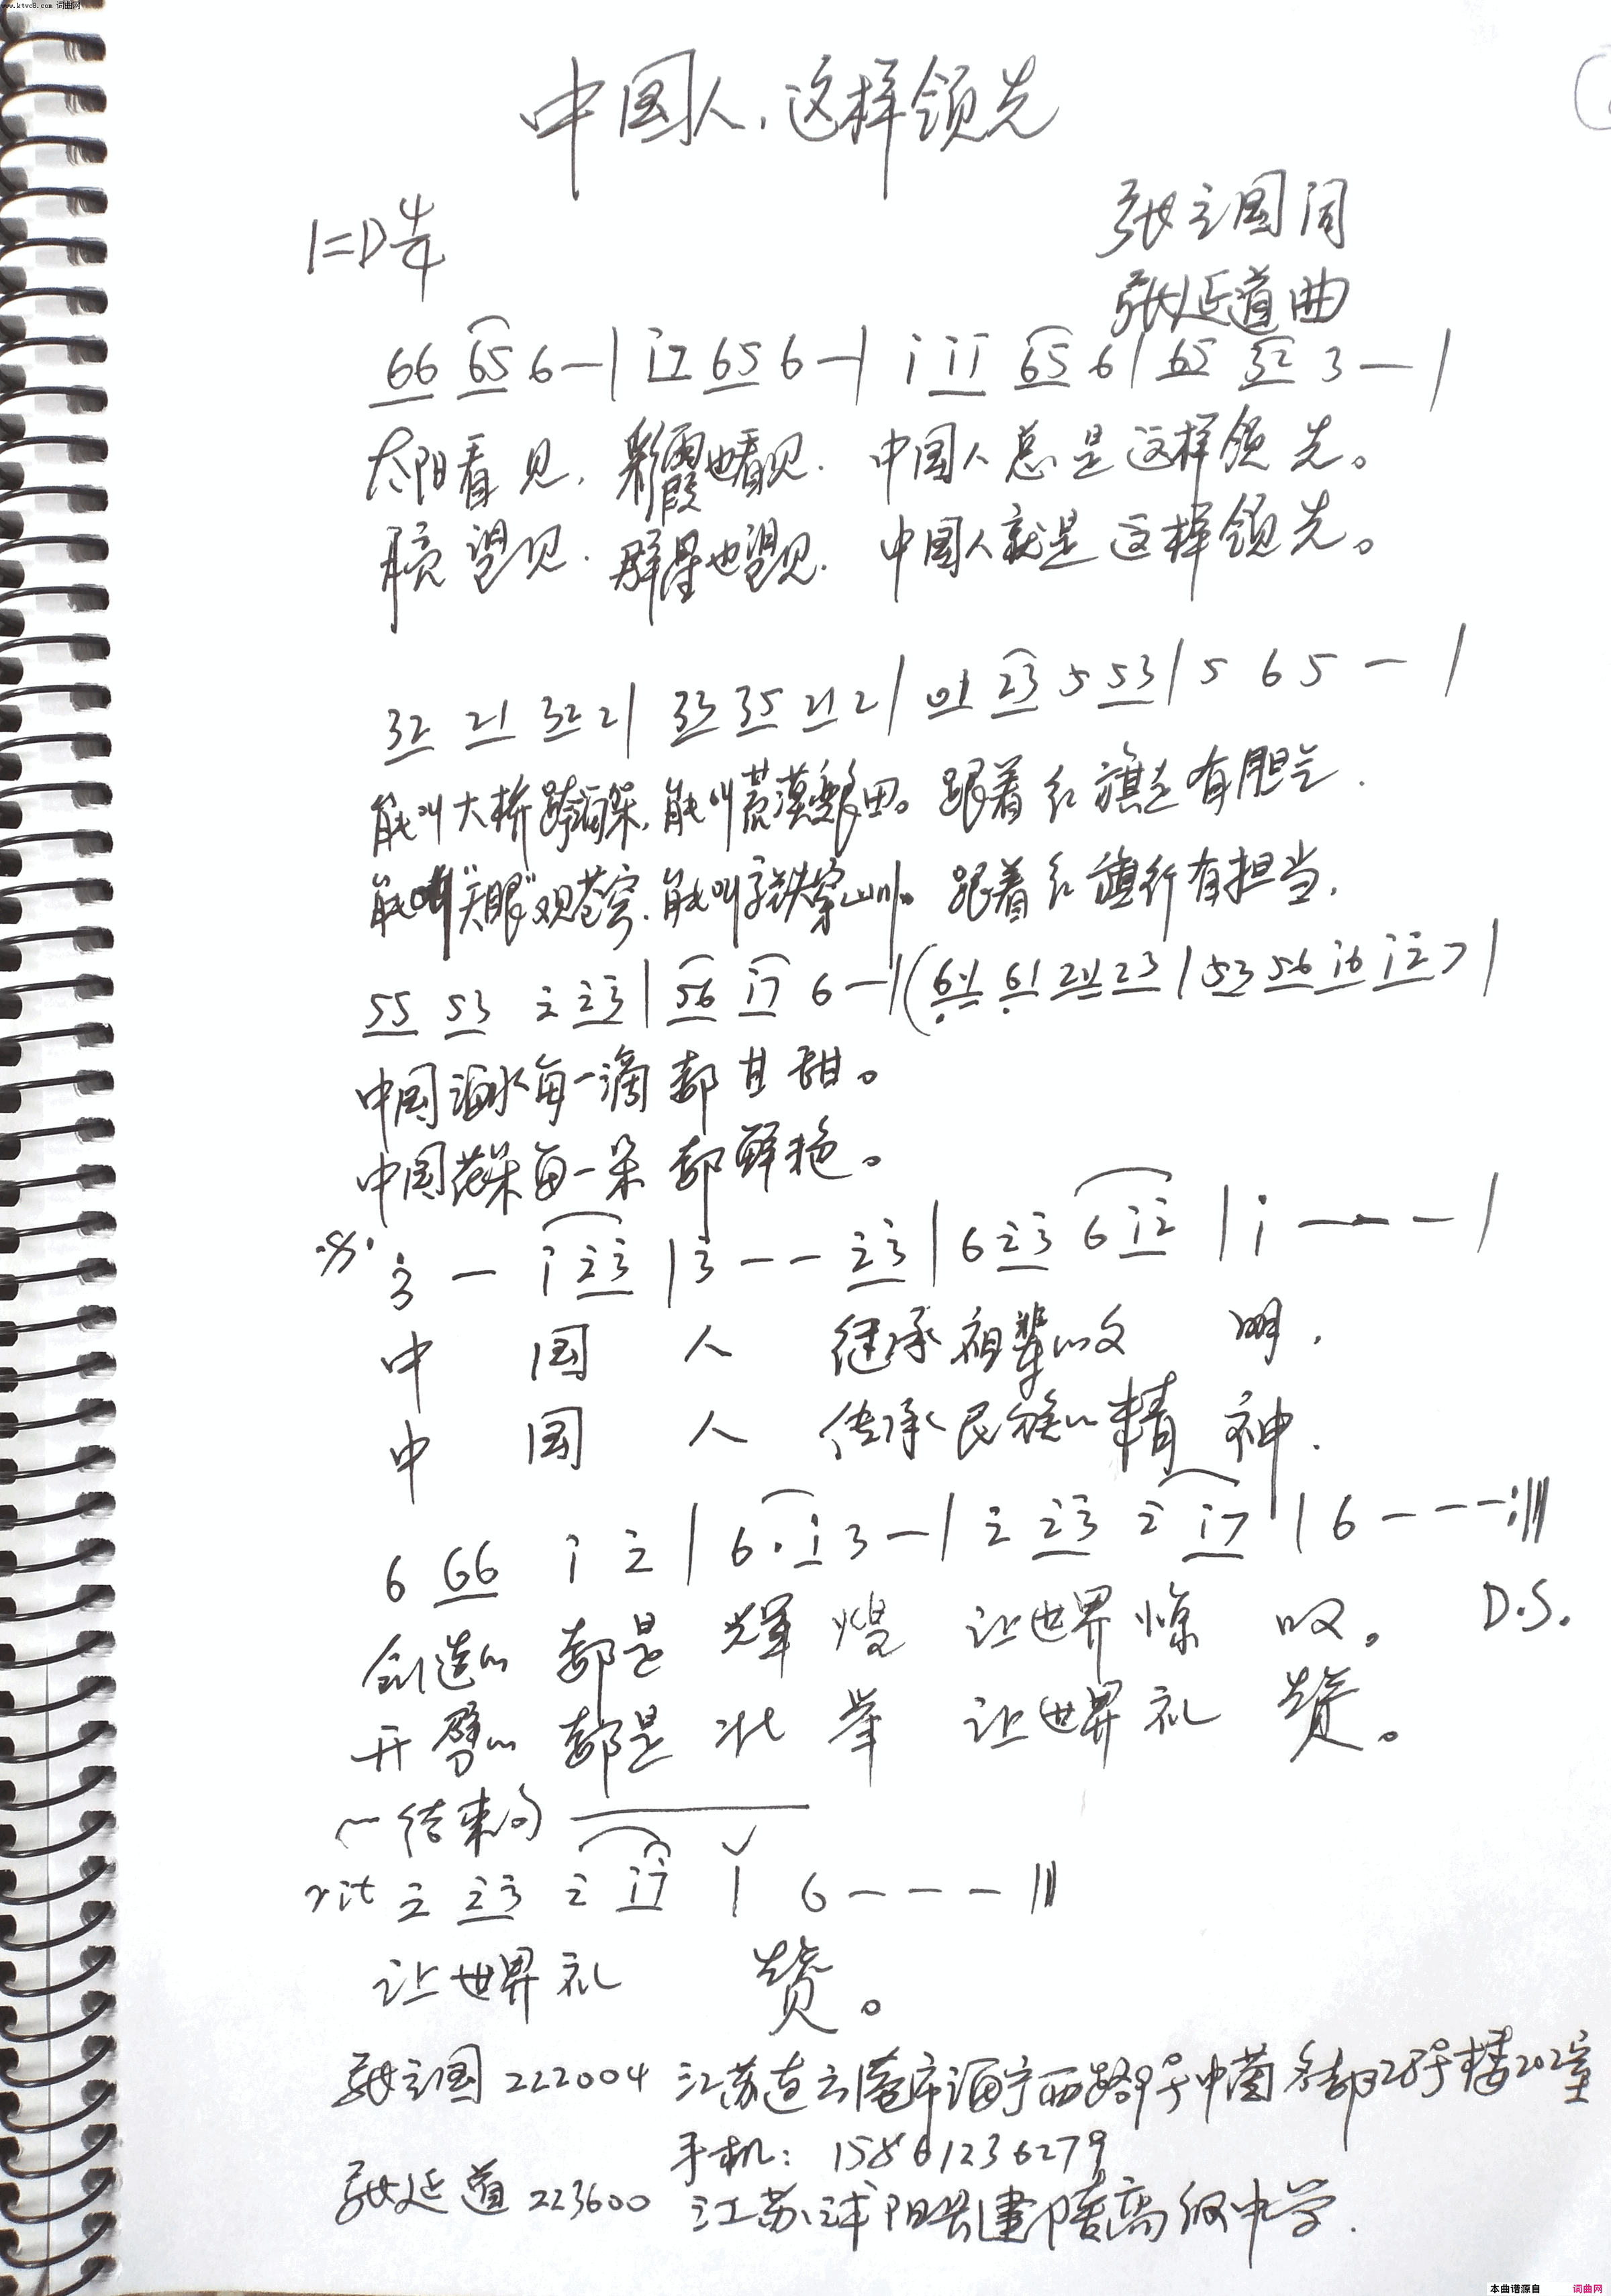 www.ktvc8.com 词曲网
中国人,这样领先
1=D 4/4
张立国词
张延道曲
66 65 6 — | i7 65 6 — | i ii 65 6 | 65 32 3 — |
太阳看见,彩霞也看见.中国人总是这样领先。
月亮望见.群星也望见.中国人就是这样领先。
32 21 32 2 | 33 35 21 2 | 01 23 5 53 | 5 6 5 — |
能叫大桥跨海深,能叫荒漠变良田。跟着红旗走有胆气.
能叫"天眼"观苍穹.能叫高铁穿山川。跟着红旗行有担当,
55 53 2 23 | 56 i7 6 — | (61 61 21 23 | 53 56 i6 i27 |
中国海水每一滴都甘甜。
中国花朵每一朵都鲜艳。
3 — i 23 | 3 — — 23 | 6 23 6 i2 | i — — — |
中国人 继承祖辈的文明.
中国人 传承民族的精神.
6 66 i 2 | 6 · i 3 — | 2 23 2 i7 | 6 — — — :||
创造的都是辉煌 让世界惊叹。 D.S.
开劈的都是壮举 让世界礼赞。
结束句
rit 2 23 2 i7 | 6 — — — ||
让世界礼赞。
张立国 222004 江苏连云港市海宁西路9号中茵名都25号楼202室
手机: 15861236279
张延道 223600 江苏沭阳县建陵高级中学.
本曲谱源自 词曲网